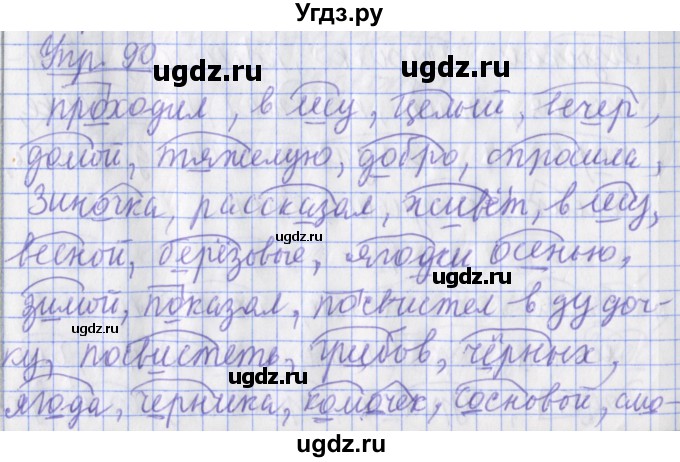 Угдз.ру
Упр. 90
ugdz.ru ugdz.ru
проходил, в лесу, целый, вечер,
домой, тяжелую, добро, спросила,
ugdz.ru
Зиночка, рассказал, живёт, в лесу,
ugdz.ru
весной, берёзовые, ягодки осенью,
зимой, показал, посвистел в дудоч-
ugdz.ru ugdz.ru
ку, посвистеть, грибов, чёрных,
ugdz.ru
ягода, черника, комочек, сосновой, смо-
ugdz.ru